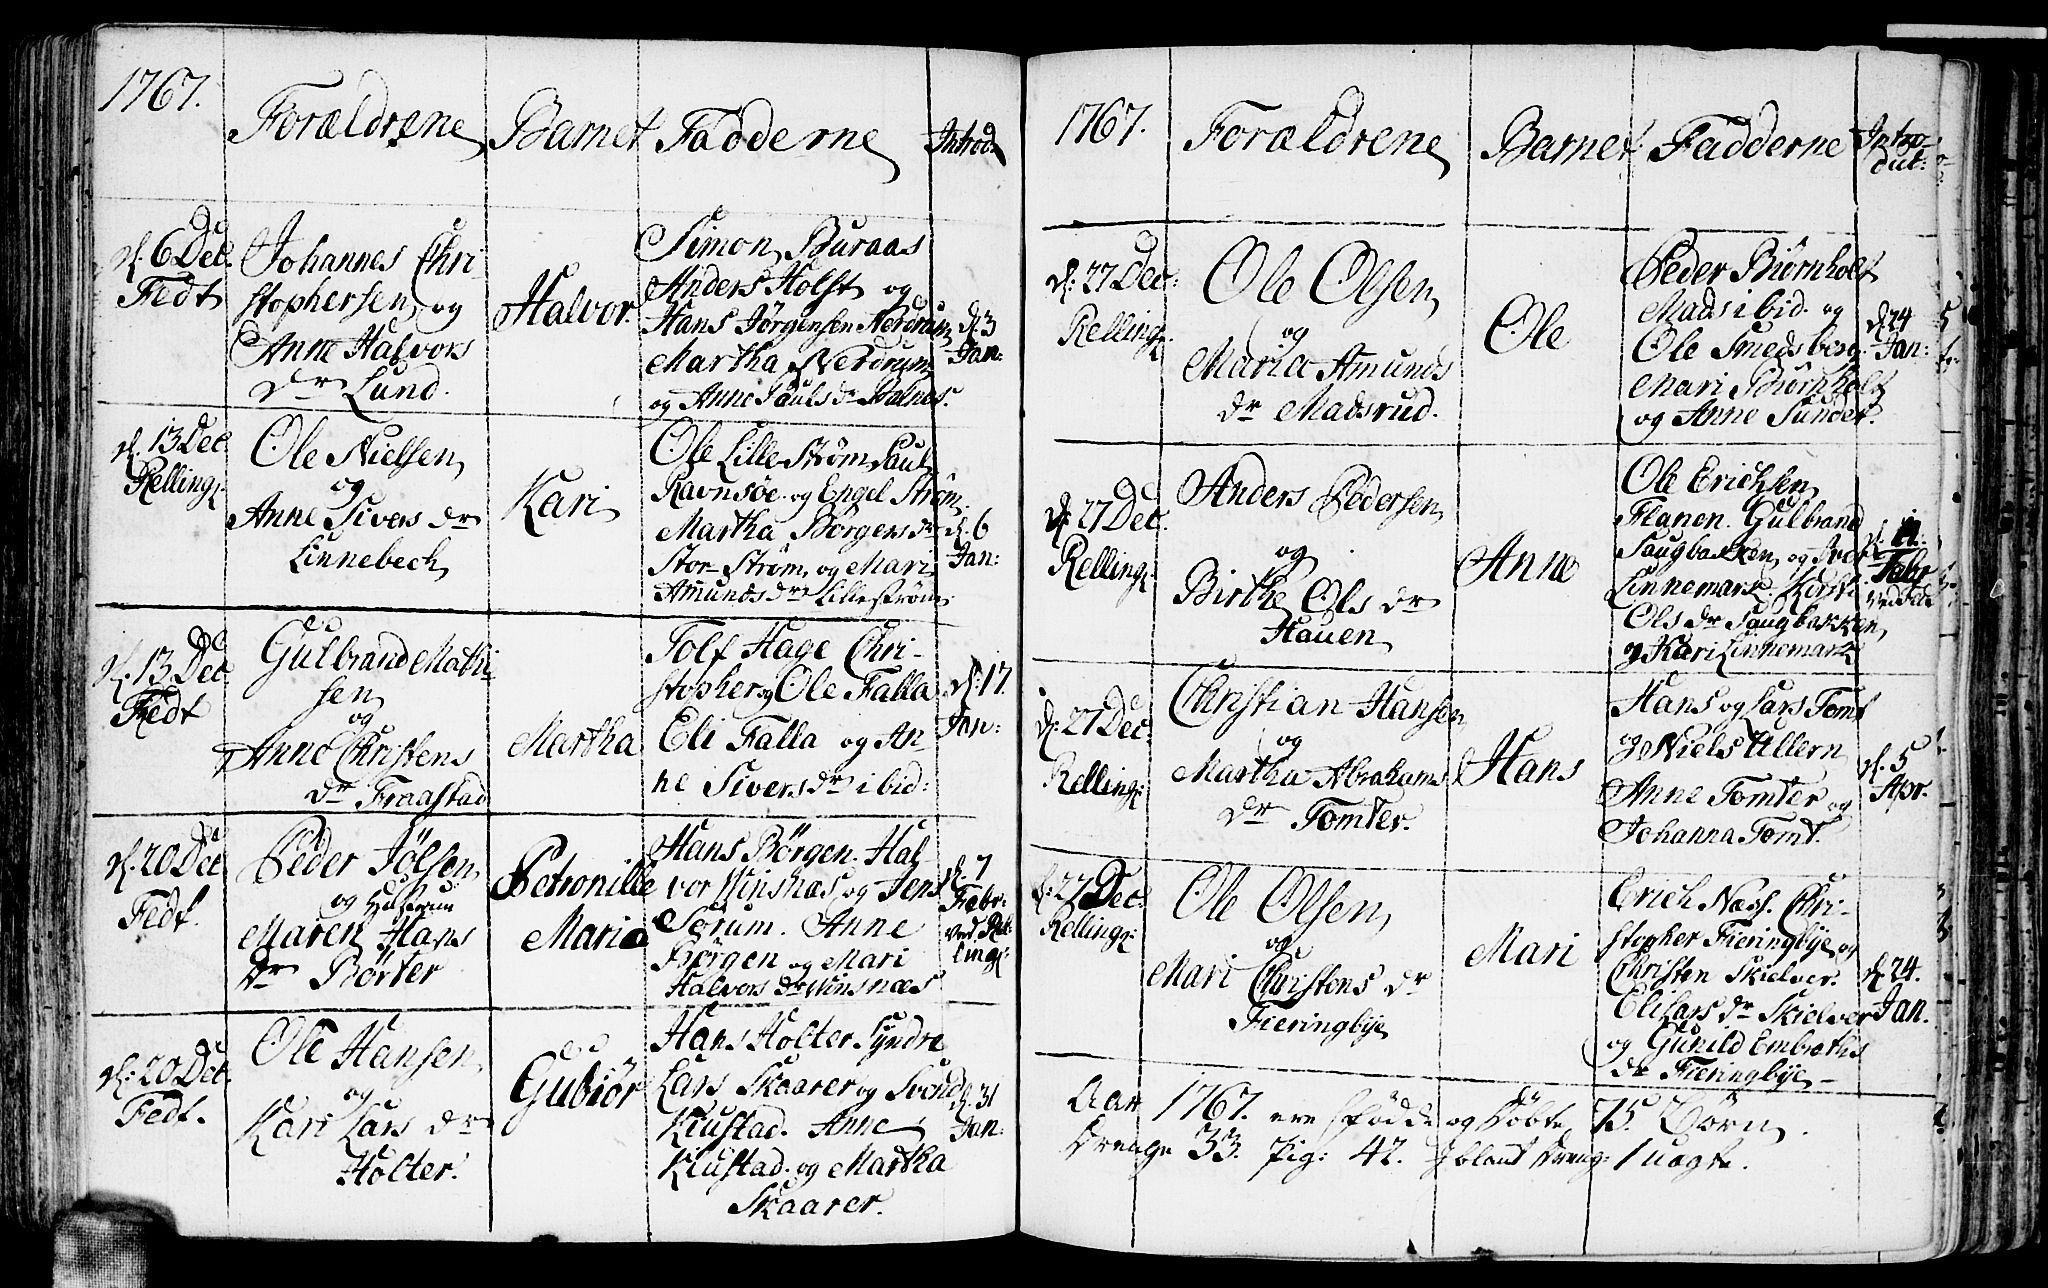 1767.
Forældrene Barnet Fadderne Introd.
d. 6 Dec.
Fedt
Johannes Chri
stophersen og
Anne Halvors
dr Lund.
Halvor.
Simon Buraas
Anders Holst og
Hans Jørgensen Nerdrum
Martha Nerdrum
og Anne Pauls dr Balnes.
d. 3
Jan:
d. 13 Dec
Relling:
Ole Nielsen
og
Anne Sivers dr
Linnebech
Kari
Ole Lille Strøm Paul
Ravnsøe og Engel Strøm.
Martha Børgers dr
Stor Strøm og Mari
Amunds dr Lillestrøm
d. 6
Jan:
d. 13 Dec
Fedt
Gulbrand Mathi
sen
og
Anne Christens
dr Fraastad
Martha
Tolf Hage Chri-
stopher og Ole Falla
Eli Falla og An-
ne Sivers dr ibid:
d. 17.
Jan:
d. 20 Dec
Fedt.
Peder Jølsen
og Hustrue
Maren Hans
dr Børter
Petronille
Maria
Hans Børgen. Hal-
vor Winsnæs og Jens
Sørum. Anne
Børgen og Mari
Halvors dr Winsnæs
d. 7
Febr:
ved Rel-
ling:
d. 20 Dec.
Fedt.
Ole Hansen
og
Kari Lars dr
Holter.
Gubiør
Hans Holter Syndre
Lars Skaarer og Svend
Kiustad. Anne
Kiustad. og Martha
Skaarer.
d. 31
Jan:
1767.
Forældrene Barnet Fadderne Intro-
duc:
d. 27 Dec.
Relling:
Ole Olsen
og
Maria Amunds
dr Madsrud.
Ole
Peder Biørnholt
Mads ibid. og
Ole Smedsberg.
Mari Biørnholt
og Anne Sunder.
d. 24
Jan:
d. 27 Dec.
Relling:
Anders Pedersen
og
Birthe Ols dr
Hauen
Anne
Ole Erichsen
Flanen. Gulbrand
Saugbakken og
Linnemark. Kirsti
Ols dr Saugbakken
og Kari Linnemark
Febr
ved Fedt
d. 27 Dec.
Relling:
Christian Hansen
og
Martha Abrahams
dr Tomter.
Hans
Hans og Lars Tomt
og Niels Ullern
Anne Tomter og
Johanna Tomt.
d. 5
Apr.
d. 27 Dec.
Relling:
Ole Olsen
og
Mari Christens dr
Fieringbye
Mari
Erich Næss. Chri-
stopher Fieringbye og
Christen Skielver.
Eli Lars dr Skielver
og Gunild Embreths
dr Fieringbye -
d. 24.
Jan.
Aar 1767. ere fødde og døbte 75. Børn.
Drenge 33. Pig: 42. Iblant Dreng: 1 uægte.